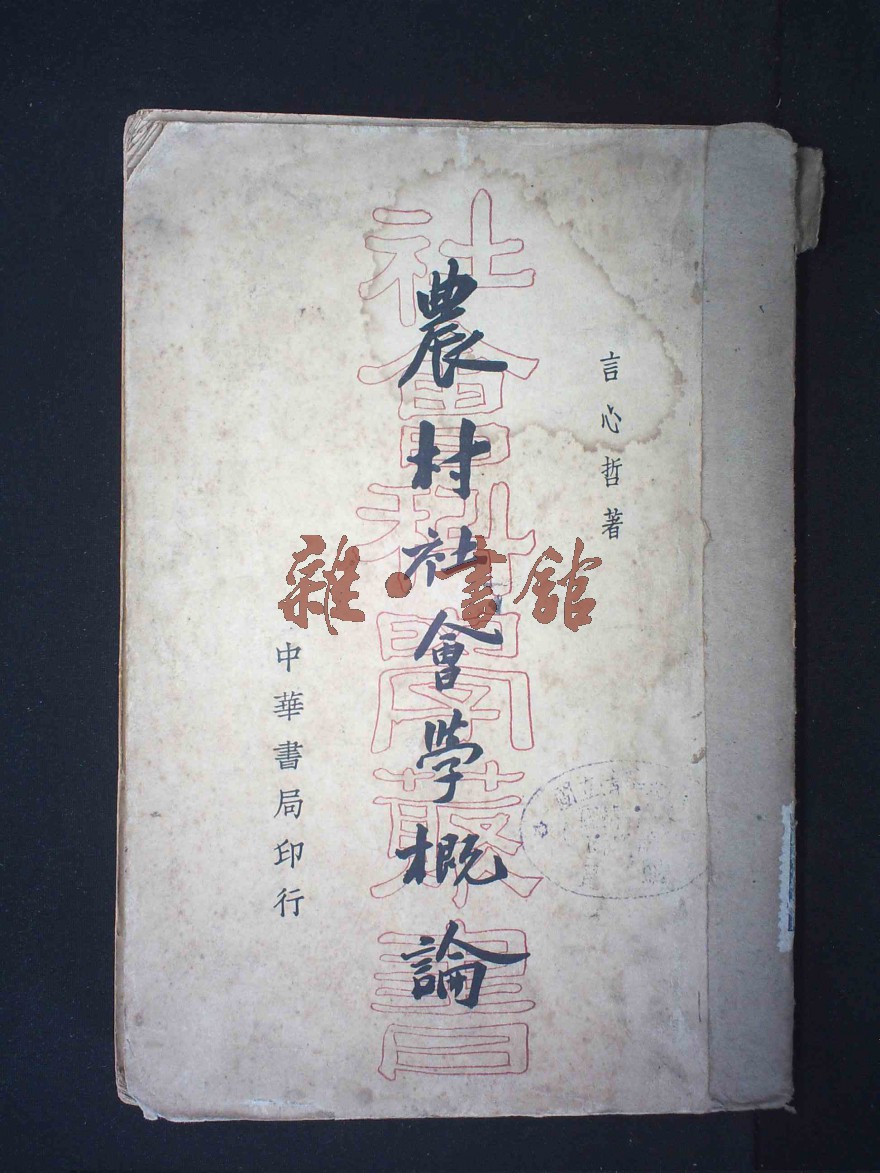 言心哲著
農村社會學概論
社會科學叢書
中華書局印行
雜·書館